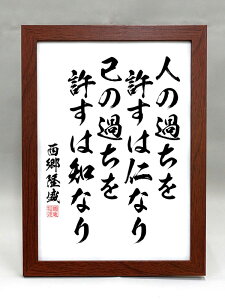 人の過ちを
許すは仁なり
己の過ちを
許すは知なり
西郷隆盛